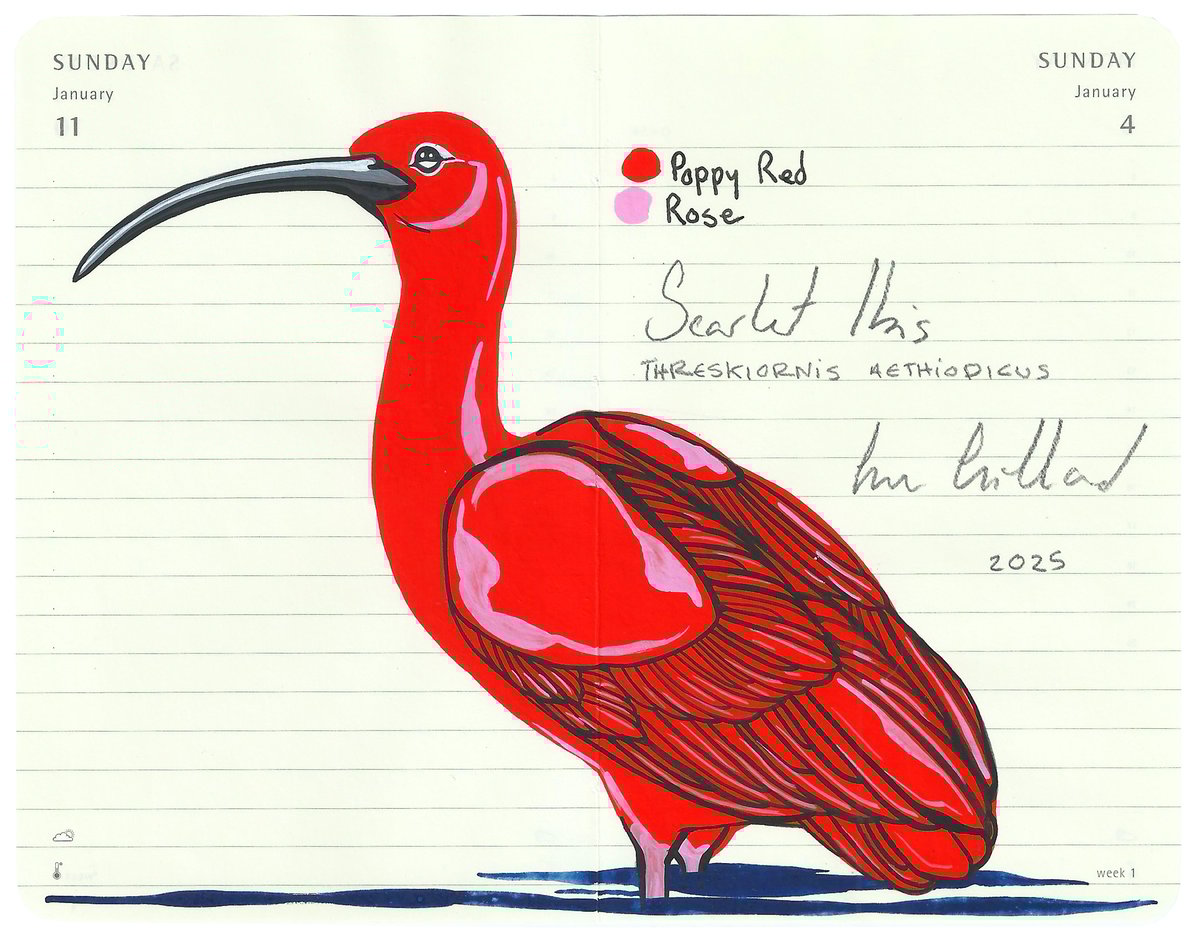 SUNDAY
January
11
SUNDAY
January
4
Poppy Red
Rose
Scarlet Ibis
THRESKIORNIS AETHIOPICUS
2025
week 1